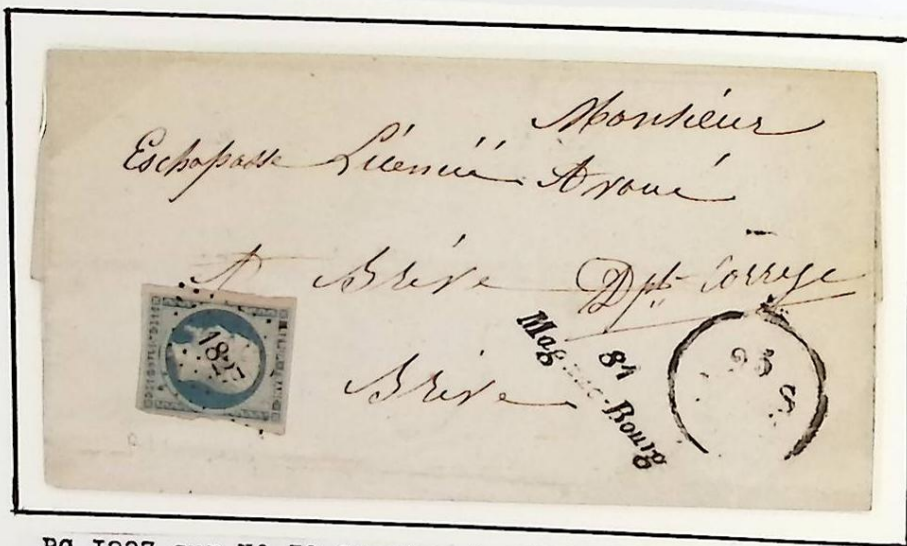 Monsieur
Eschapasse Licencié Avoué
A Brive Dpt Corrèze
Brive
81
Magnac-Bourg
1827